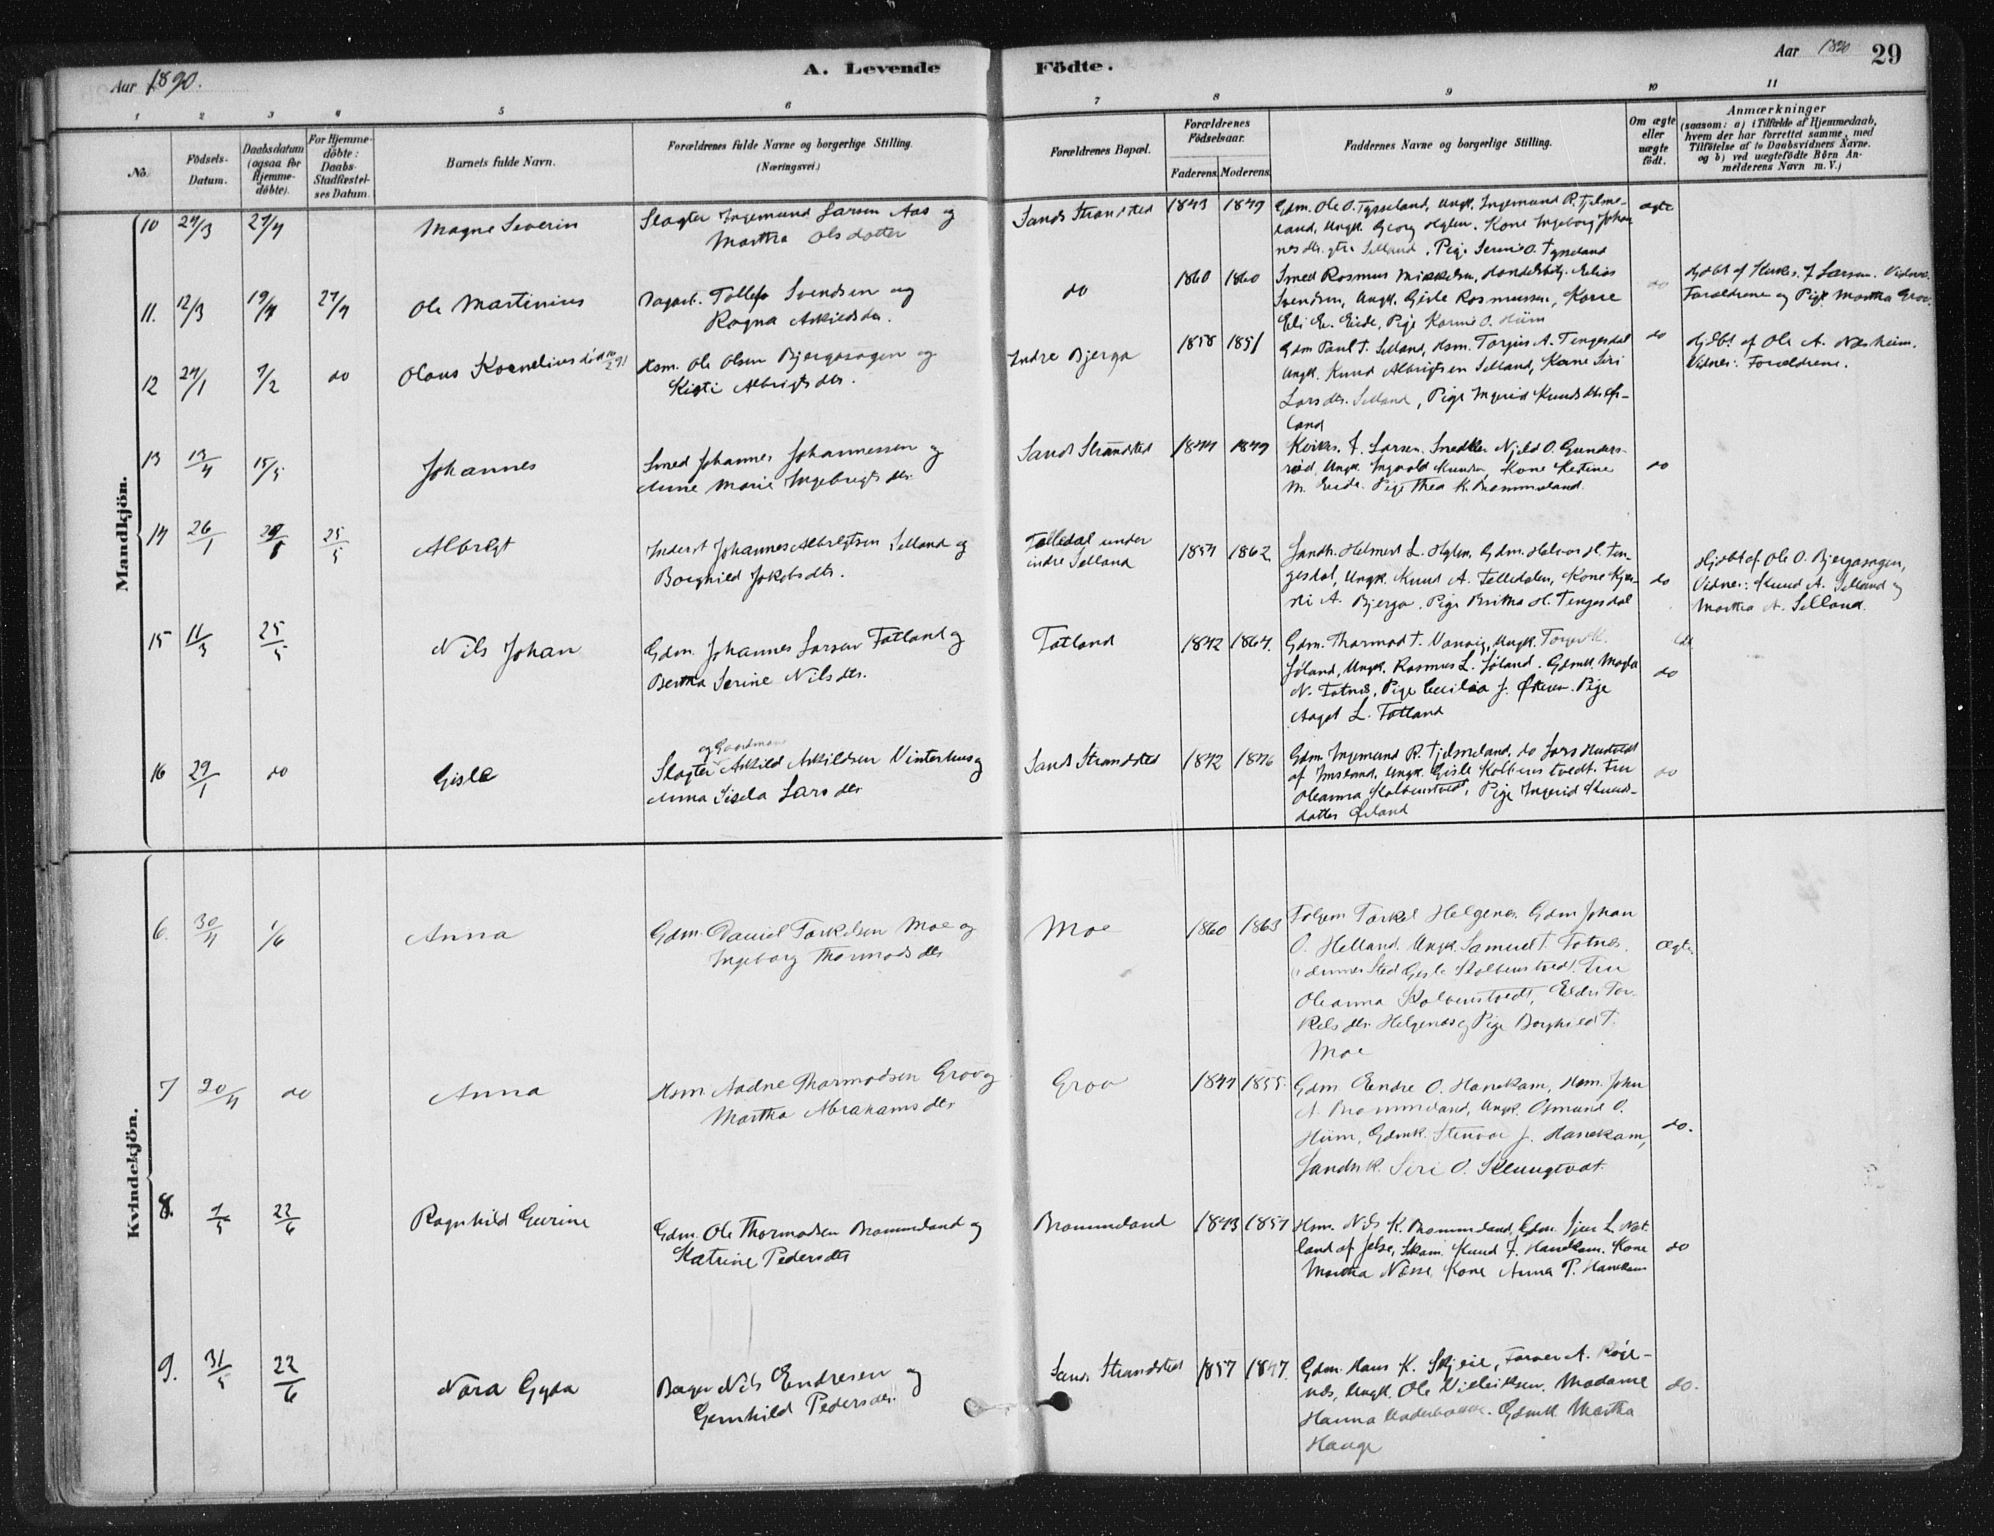 Aar 1890.
A. Levende Födte.
Aar 1890
29
1 2 3 4 5 6 7 8 9 10 11
No.
Födsels-
Datum.
Daabsdatum
(ogsaa for
Hjemme-
döbte).
For Hjemme-
döbte:
Daabs-
Stadfæstel-
ses Datum.
Barnets fulde Navn.
Forældrenes fulde Navne og borgerlige Stilling.
(Næringsvei.)
Forældrenes Bopæl.
Forældrenes
Födselsaar.
Faderens. Moderens.
Faddernes Navne og borgerlige Stilling.
Om ægte
eller
uægte
födt.
Anmærkninger
(saasom: a) i Tilfælde af Hjemmedaab,
hvem der har forrettet samme, med
Tilföielse af to Daabsvidners Navne.
og b) ved uægtefödte Börn An-
melderens Navn m. V.)
Mandkjön.
10 27/4 Magne Severin
Slagter Ingemund Larsen Aas og
Martha Olsdatter
Sands Strandsted 1843 1849
Gdm. Ole O. Tysseland, Ungk. Ingemund R. Tjelme-
land, Ungk. Georg Hylen, Kone Ingeborg Johan
Selland, Pige Serine O. Tysseland
ægte
11. 12/3 19/4 27/4 Ole Martinius
Tollef Svendsen og
Ragna Askildsdr.
do 1860 1860
Smed Rasmus Mikkelsen, Elias
Svendsen, Ungk. Gisle Rasmussen, Kone
Eli E. Eide, Pige Karine O. Hiim
do
Hjdbt af Kirkes. J. Larsen. Vidner:
Forældrene og Pige Martha Grov.
12 do Olaus Kornelius
Hsm. Ole Olsen Bjergasagen og
Kisti Albrigtsdr.
Indre Bjerga 1858 1851
Gdm Paul T. Selland, Hsm. Torgius A. Tengesdal
Ungk. Knud Albrigtsen Selland, Kone Siri
Larsdr. Selland, Pige Ingerid
land
do
Hjdbt af Ole A. Nesheim.
Vidner: Forældrene.
13 13/4 15/5 Johannes
Smed Johannes Johannessen og
Anne Marie Ingebrigtsdr.
Sands Strandsted 1844 1849
Kirkes. J. Larsen, Njeld O. Gunders-
rød, Ungk. Ingvald Knudsen Kone Kristine
M. Eide. Pige Thea K. Brommeland.
do
14 26/1 25/5 Albregt
Inderst Johannes Albregtsen Selland og
Borghild Jakobsdr.
Telledal under
indre Selland 1854 1862
Landh. Helmert L. Hylen, Gdm. Helvor H. Ten-
gesdal, Ungk. Knud A. Telledalen, Kone Kjer-
sti A. Bjerga. Pige Britha H. Tengesdal
do
Hjdbt af Ole O. Bjergasagen,
Vidner: Knud A. Selland og
Martha A. Selland.
15 11/3 25/5 Nils Johan
Gdm. Johannes Larsen Fatland og
Bertha Serine Nilsdr.
Fatland 1842 1864.
Gdm. Thormod T. Vanvig, Ungk.
Jøland, Ungk. Rasmus L. Jøland. Gdmk. Magla
N. Fatnes, Pige Cecilia J. Økern. Pige
Aagot L. Fatland
do
16 29/1 do Gisle
og Gaardman
Slagter Askild Askildsen Vinterhus og
Anna Sisela Larsdr
Sands Strandsted 1842 1846
Gdm. Ingemund R. Tjelmeland, do Lars Hustvedt
af Imsland, Ungk. Gisle Kolbenstvedt. Fru
Oleanna Kolbenstvedt, Pige Ingerid Knuds-
datter Øiland
do
Kvindekjön.
6. 30/4 1/6 Anna
Gdm. Daniel Torkelsen Moe og
Ingeborg Thormodsdr
Moe 1860 1863
Torkel Helgenes. Gdm Johan
O. Helland. Ungk. Samuel T. Fatnes.
Gisle Kolbenstvedt. Fru
Oleanna Kolbenstvedt, Eldri Tor-
kelsdr. Helgenes og Pige Borghild T.
Moe
ægte.
7 30/4 do Anna
Hsm. Aadne Thormodsen Grov og
Martha Abrahamsdr
Grov 1844 1855.
Gdm. Endre O. Hanekam, Hsm. John
A. Brommeland, Ungk. Osmund O.
Hiim, Gdmk. Stenvor J. Hanekam,
Landh.k. Siri O. Klungtvedt.
do.
8. 22/6 Ragnhild Geirine
Gdm. Ole Thormodsen Brommeland og
Katrine Pedersdr
Brommeland 1843 1857
Hsm. Nils K. Brommeland, Gdm. L. Nat-
land af Jelse, Knud J. Hanekam. Kone
Martha Næsse, Kone Anna P. Hanekam
do
9. 31/5 22/6 Nora Gyda
Bager Nils Endresen og
Gunhild Pedersdr.
Sands Strandsted 1857 1847.
Gdm. Hans K. Skjeie, Farver A.
Ungk. Ole Villeiksen. Madame
Hanna Gdmk. Martha
Hauge
do.